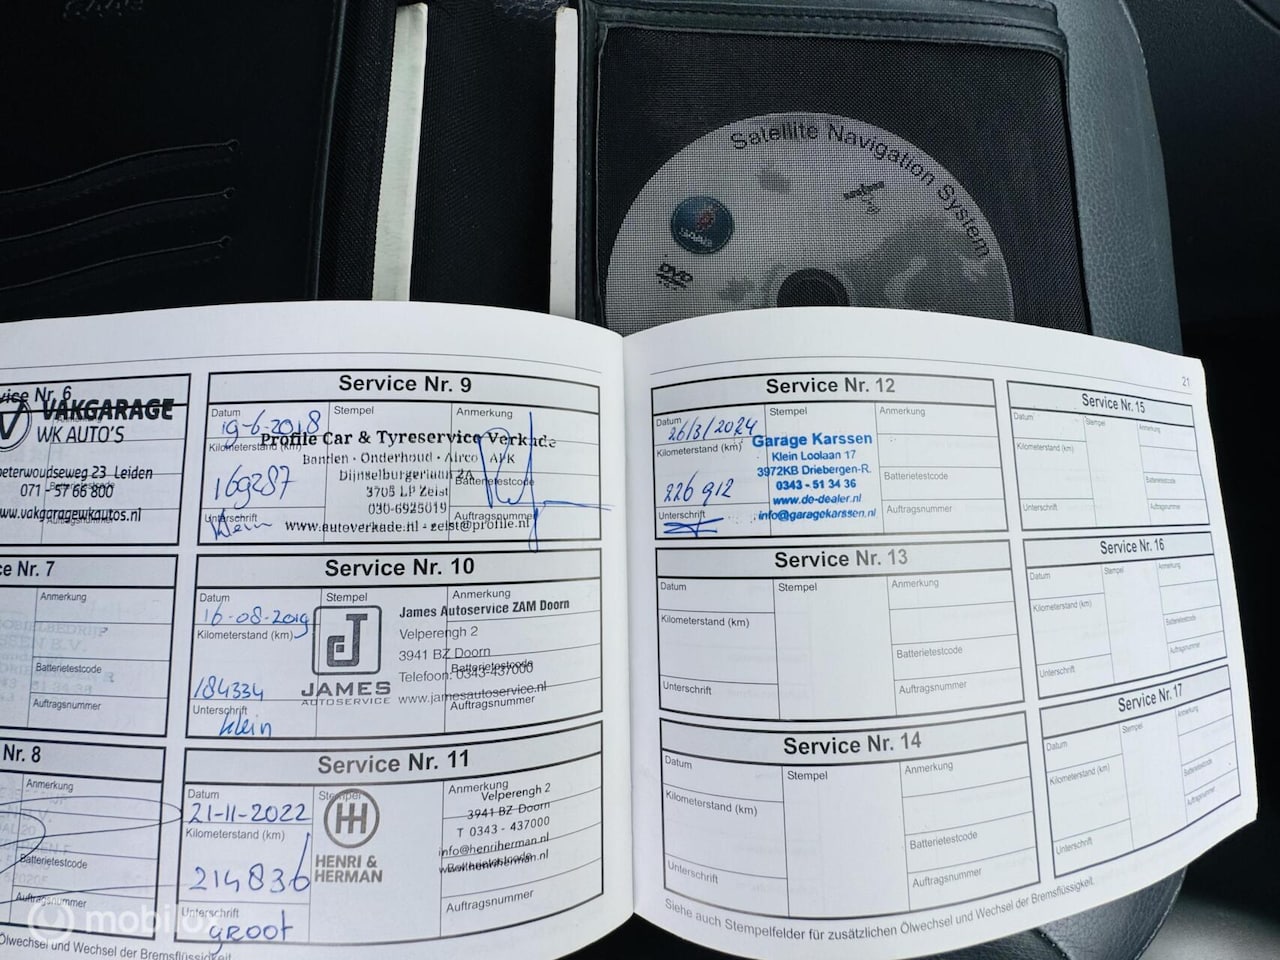 Satellite Navigation System
SAAB
DVD
vice Nr. 6
VAKGARAGE
WK AUTO'S
oeterwoudseweg 23 Leiden
071 - 57 66 800
www.vakgaragewkautos.nl
Auftragsnummer
ce Nr. 7
Anmerkung
Batterietestcode
Auftragsnummer
Nr. 8
Anmerkung
Batterietestcode
Auftragsnummer
Ölwechsel und Wechsel der Bremsflüssigkeit.
Service Nr. 9
Datum
19-6-2018
Stempel
Anmerkung
Kilometerstand (km)
Profile Car & Tyreservice Verkade
Banden · Onderhoud · Airco APK
Dijnselburgerlaan 2A
Batterietestcode
169287
3705 LP Zeist
030-6925019
Auftragsnummer
Unterschrift
Klein
www.autoverkade.nl - zeist@profile.nl
Service Nr. 10
Datum
Stempel
Anmerkung
16-08-2019
James Autoservice ZAM Doorn
Kilometerstand (km)
Velperengh 2
3941 BZ Doorn
Batterietestcode
Telefoon: 0343-437000
184334
JAMES
AUTOSERVICE
www.jamesautoservice.nl
Auftragsnummer
Unterschrift
Klein
Service Nr. 11
Datum
Stempel
Anmerkung
21-11-2022
Velperengh 2
3941 BZ Doorn
Kilometerstand (km)
T 0343 - 437000
info@henriherman.nl
HENRI &
HERMAN
Batterietestcode
www.henriherman.nl
214836
Auftragsnummer
Unterschrift
GROOT
21
Service Nr. 12
Datum
26/3/2024
Stempel
Anmerkung
Kilometerstand (km)
Garage Karssen
Klein Loolaan 17
3972KB Driebergen-R.
Batterietestcode
226912
0343 - 51 34 36
www.de-dealer.nl
Unterschrift
info@garagekarssen.nl
Auftragsnummer
Service Nr. 13
Datum
Stempel
Anmerkung
Kilometerstand (km)
Batterietestcode
Unterschrift
Auftragsnummer
Service Nr. 14
Datum
Stempel
Anmerkung
Kilometerstand (km)
Batterietestcode
Unterschrift
Auftragsnummer
Service Nr. 15
Datum
Stempel
Anmerkung
Kilometerstand (km)
Batterietestcode
Unterschrift
Auftragsnummer
Service Nr. 16
Datum
Stempel
Anmerkung
Kilometerstand (km)
Batterietestcode
Unterschrift
Auftragsnummer
Service Nr. 17
Datum
Stempel
Anmerkung
Kilometerstand (km)
Batterietestcode
Unterschrift
Auftragsnummer
Siehe auch Stempelfelder für zusätzlichen Ölwechsel und Wechsel der Bremsflüssigkeit.
mobilox